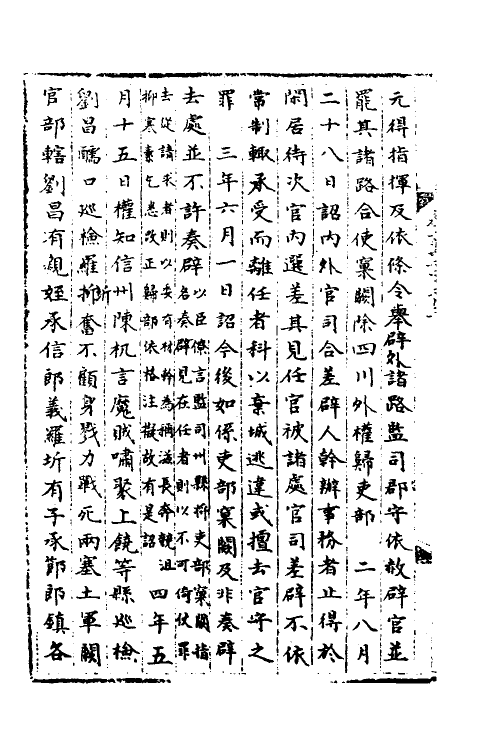 元得指揮及依條令舉辟外諸路監司郡守依故辟官並
罷其諸路合使窠闕除四川外權歸吏部　二年八月
二十八日詔内外官司合差辟人幹辦事務者止得於
閑居待次官内選差其見任官被諸處官司差辟不依
常制輙承受而離任者科以棄城逃違或擅去官守之
罪　三年六月一日詔今後如係吏部窠闕及非奏辟
去處並不許奏辟以臣僚言監司州縣抑吏部窠闕指
名奏辟見在任者則以不可倚仗罪
去從請求者則以委有材幹為稱滋長奔競沮
抑寒素乞悉改正歸部依格注擬故有是詔　四年五
月十五日權知信州陳机言魔賊嘯聚上饒等縣巡檢
劉昌䤄口巡檢羅圻奮不顧身戮力戰死兩寨土軍闕
官部轄劉昌有親姪承信郎義羅圻有子承節郎鎮各